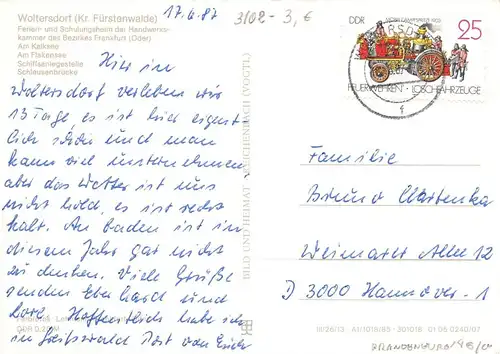 Woltersdorf (Kr. Fürstenwalde)
Ferien- und Schulungsheim der Handwerks-
kammer des Bezirkes Frankfurt (Oder)
Am Kalksee
Am Flakensee
Schiffsanlegestelle
Schleusenbrücke
17.6.87
3102 - 3,€
DDR
25
FEUERWEHREN · LÖSCHFAHRZEUGE
Hier in
Woltersdorf verleben wir
13 Tage, es ist hier eigent-
lich schön und man
kann viel unternehmen
aber das Wetter ist uns
nicht hold, es ist recht
kalt. An baden ist in
diesem Jahr gar nicht
zu denken. Viele Grüße
senden Eberhard und
Lore. Hoffentlich habe ich
in Greifswald Post von Euch
BILD UND HEIMAT REICHENBACH (VOGTL)
Familie
Bruno
Weimarer Allee 12
D 3000 Hannover-1
III/26/13 A1/1018/85 301018 01 06 0240/07
BRANDENBURG